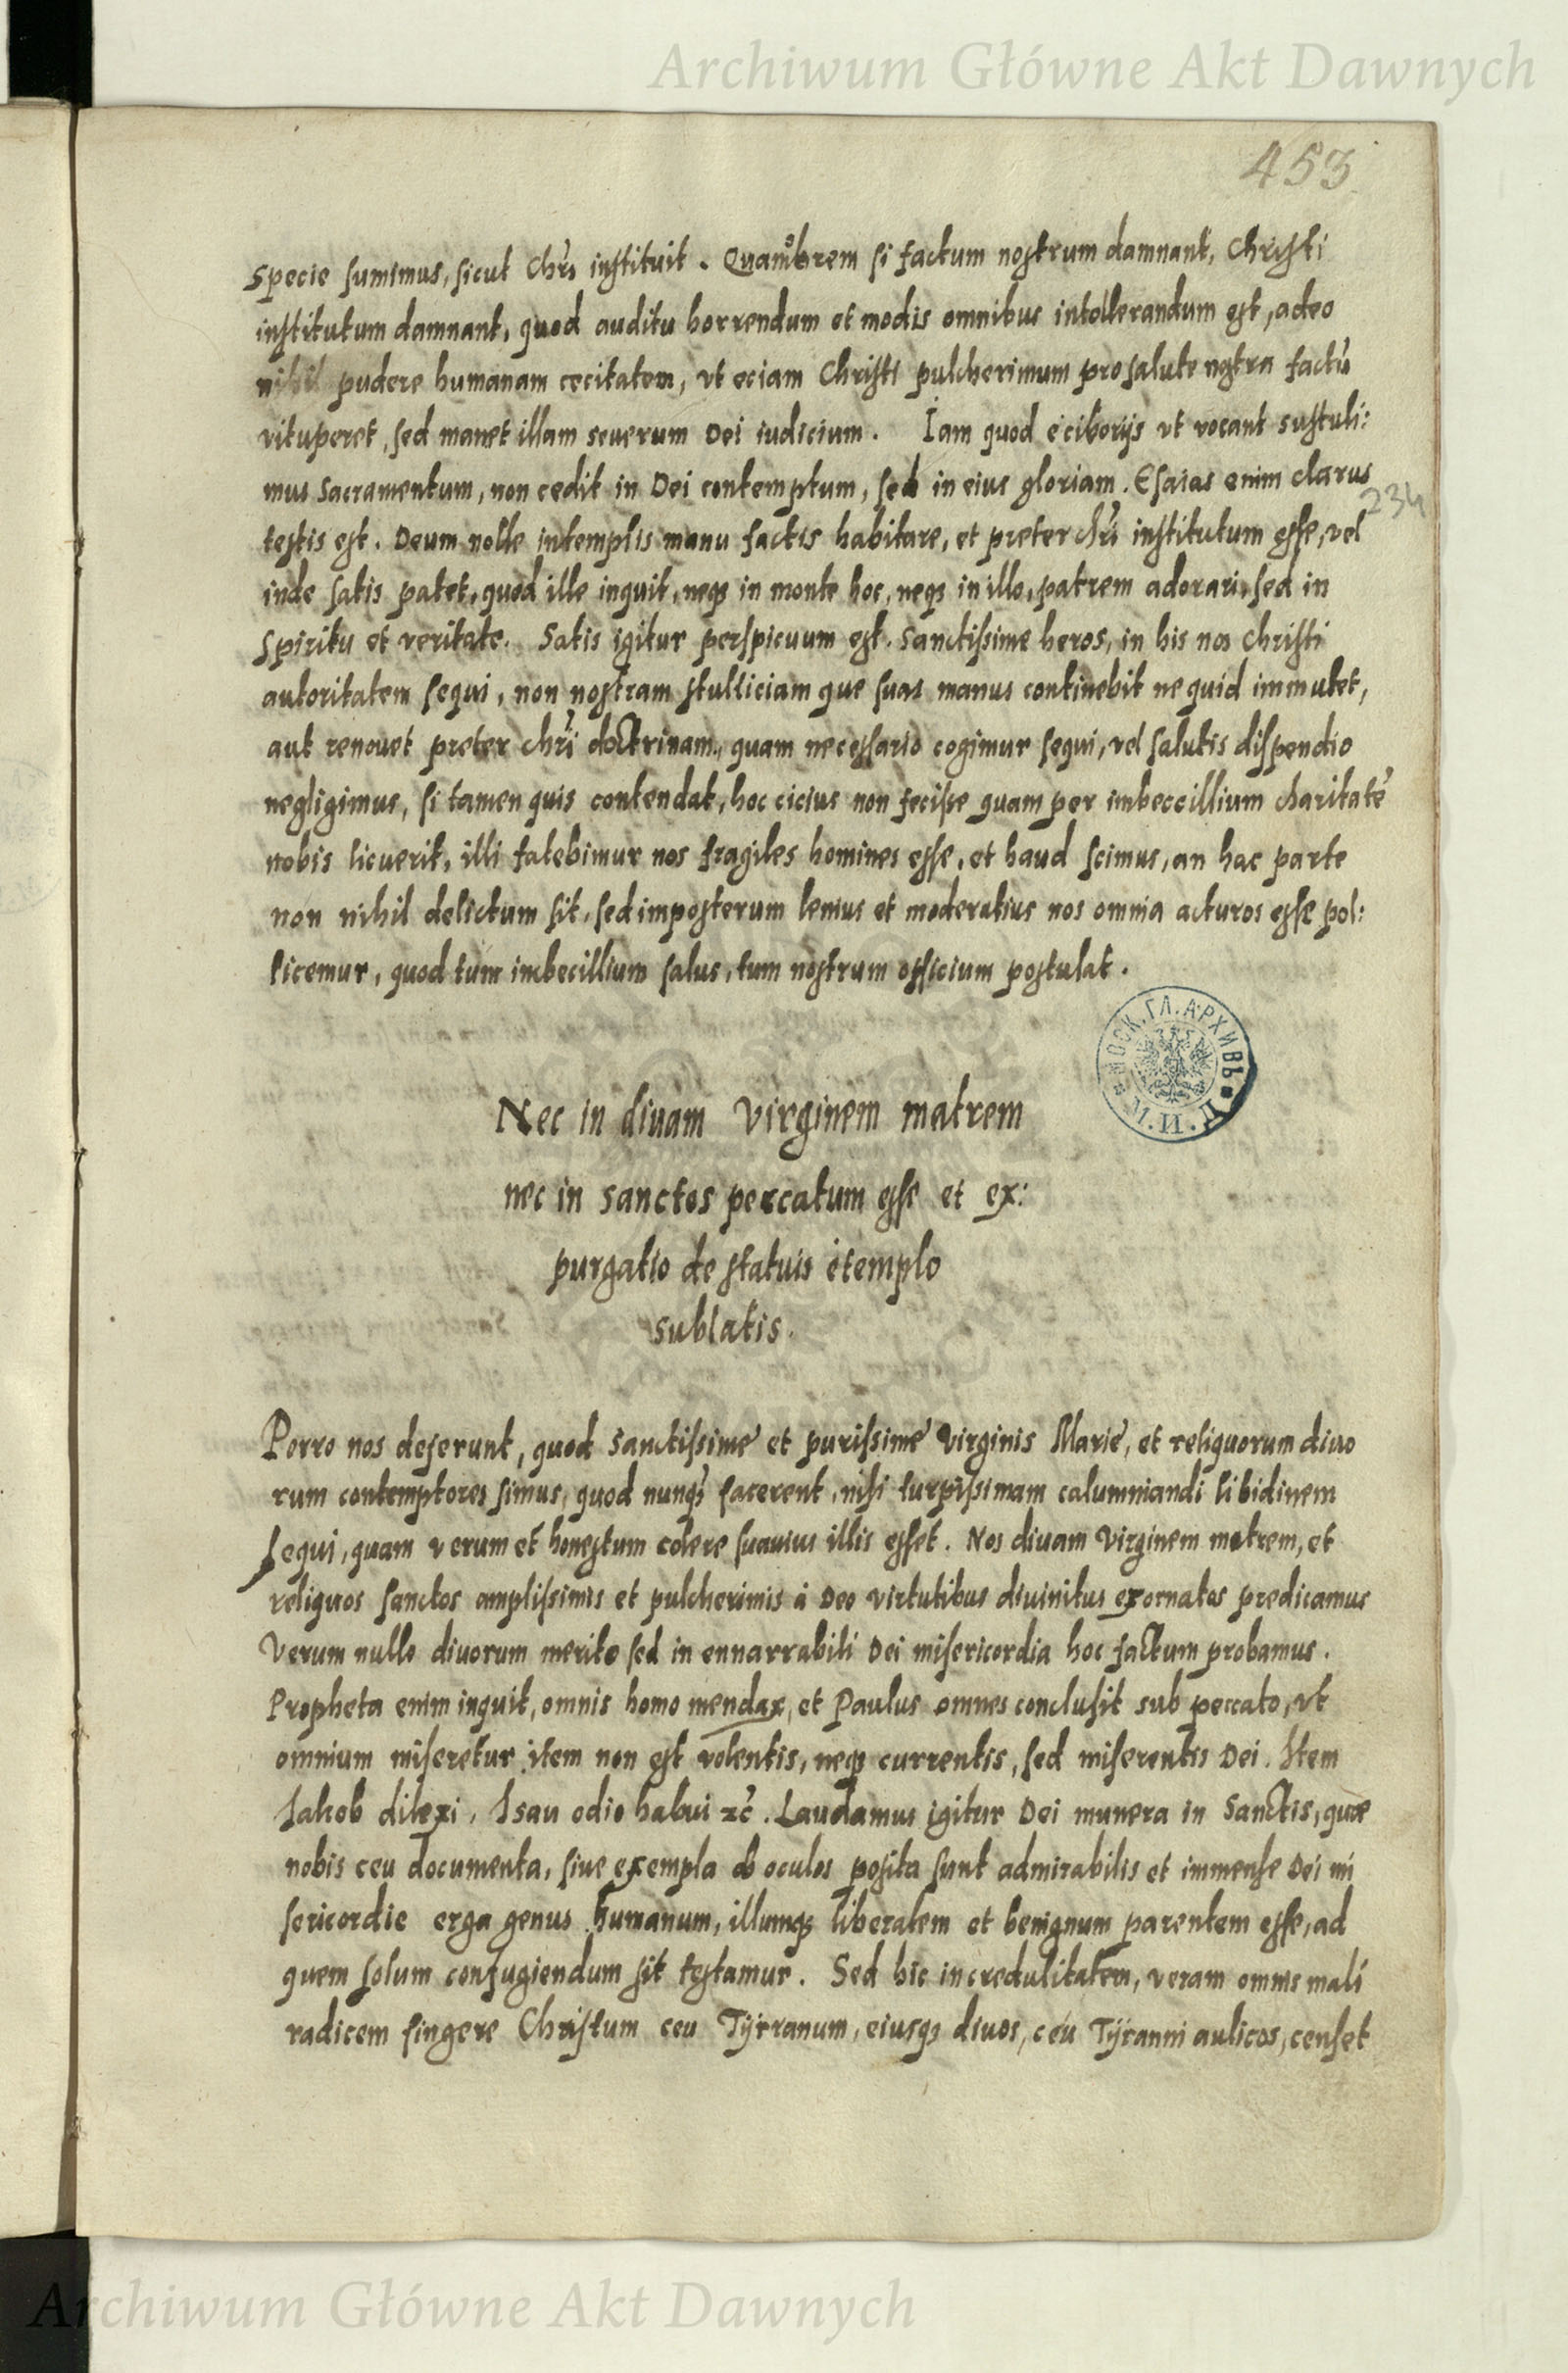 Archiwum Główne Akt Dawnych
453
specie sumimus, sicut chrs instituit. Quamobrem si factum nostrum damnant, Christi
institutum damnant, quod auditu horrendum et modis omnibus intollerandum est, adeo
nihil pudere humanam cecitatem, vt eciam Christi pulcherimum pro salute nostra factu
vituperet, sed manet illam seuerum Dei iudicium. Iam quod e ciborijs vt vocant sustuli:
mus Sacramentum, non cedit in Dei contemptum, sed in eius gloriam. Esaias enim clarus
234
testis est. Deum nolle in templis manu factis habitare, et preter chri institutum esse, vel
inde satis patet, quod ille inquit, neqз in monte hoc, neqз in illo, patrem adorari, sed in
Spiritu et veritate. Satis igitur perspicuum est. Sanctissime heros, in his nos Christi
autoritatem sequi, non nostram stulticiam que suas manus continebit ne quid immutet,
aut renouet preter chri doctrinam, quam necessario cogimur sequi, vel salutis dispendio
negligimus, si tamen quis contendat, hoc cicius non fecisse quam per imbeccillium charitatē
nobis licuerit, illi fatebimur nos fragiles homines esse, et haud scimus, an hac parte
non nihil delictum sit, sed imposterum lenius et moderatius nos omnia acturos esse pol:
licemur, quod tum imbecillium salus, tum nostrum officium postulat.
МОСК. ГЛ. АРХИВЪ М. И. Д.
Nec in diuam Virginem matrem
nec in sanctos peccatum esse et ex:
purgatio de statuis e templo
sublatis.
Porro nos deferunt, quod Sanctissime et purissime Virginis Marie, et reliquorum diuo
rum contemptores simus, quod nunqз facerent, nisi turpissimam calumniandi libidinem
sequi, quam verum et honestum colere suauius illis esset. Nos diuam Virginem matrem, et
reliquos sanctos amplissimis et pulcherimis à Deo virtutibus diuinitus exornatos predicamus
Verum nullo diuorum merito sed in ennarrabili Dei misericordia hoc factum probamus.
Propheta enim inquit, omnis homo mendax, et Paulus omnes conclusit sub peccato, vt
omnium miseretur, item non est volentis, neqз currentis, sed miserentis Dei. Item
Jakob dilexi, Isau odio habui zc. Laudamus igitur Dei munera in Sanctis, quae
nobis ceu documenta, siue exempla ob oculos posita sunt admirabilis et immense Dei mi
sericordie erga genus humanum, illumqз liberalem et benignum parentem esse, ad
quem solum confugiendum sit testamur. Sed hic incredulitatem, veram omnis mali
radicem fingere Christum ceu Tyrranum, eiusqз diuos, ceu Tyranni aulicos, censet
Archiwum Główne Akt Dawnych